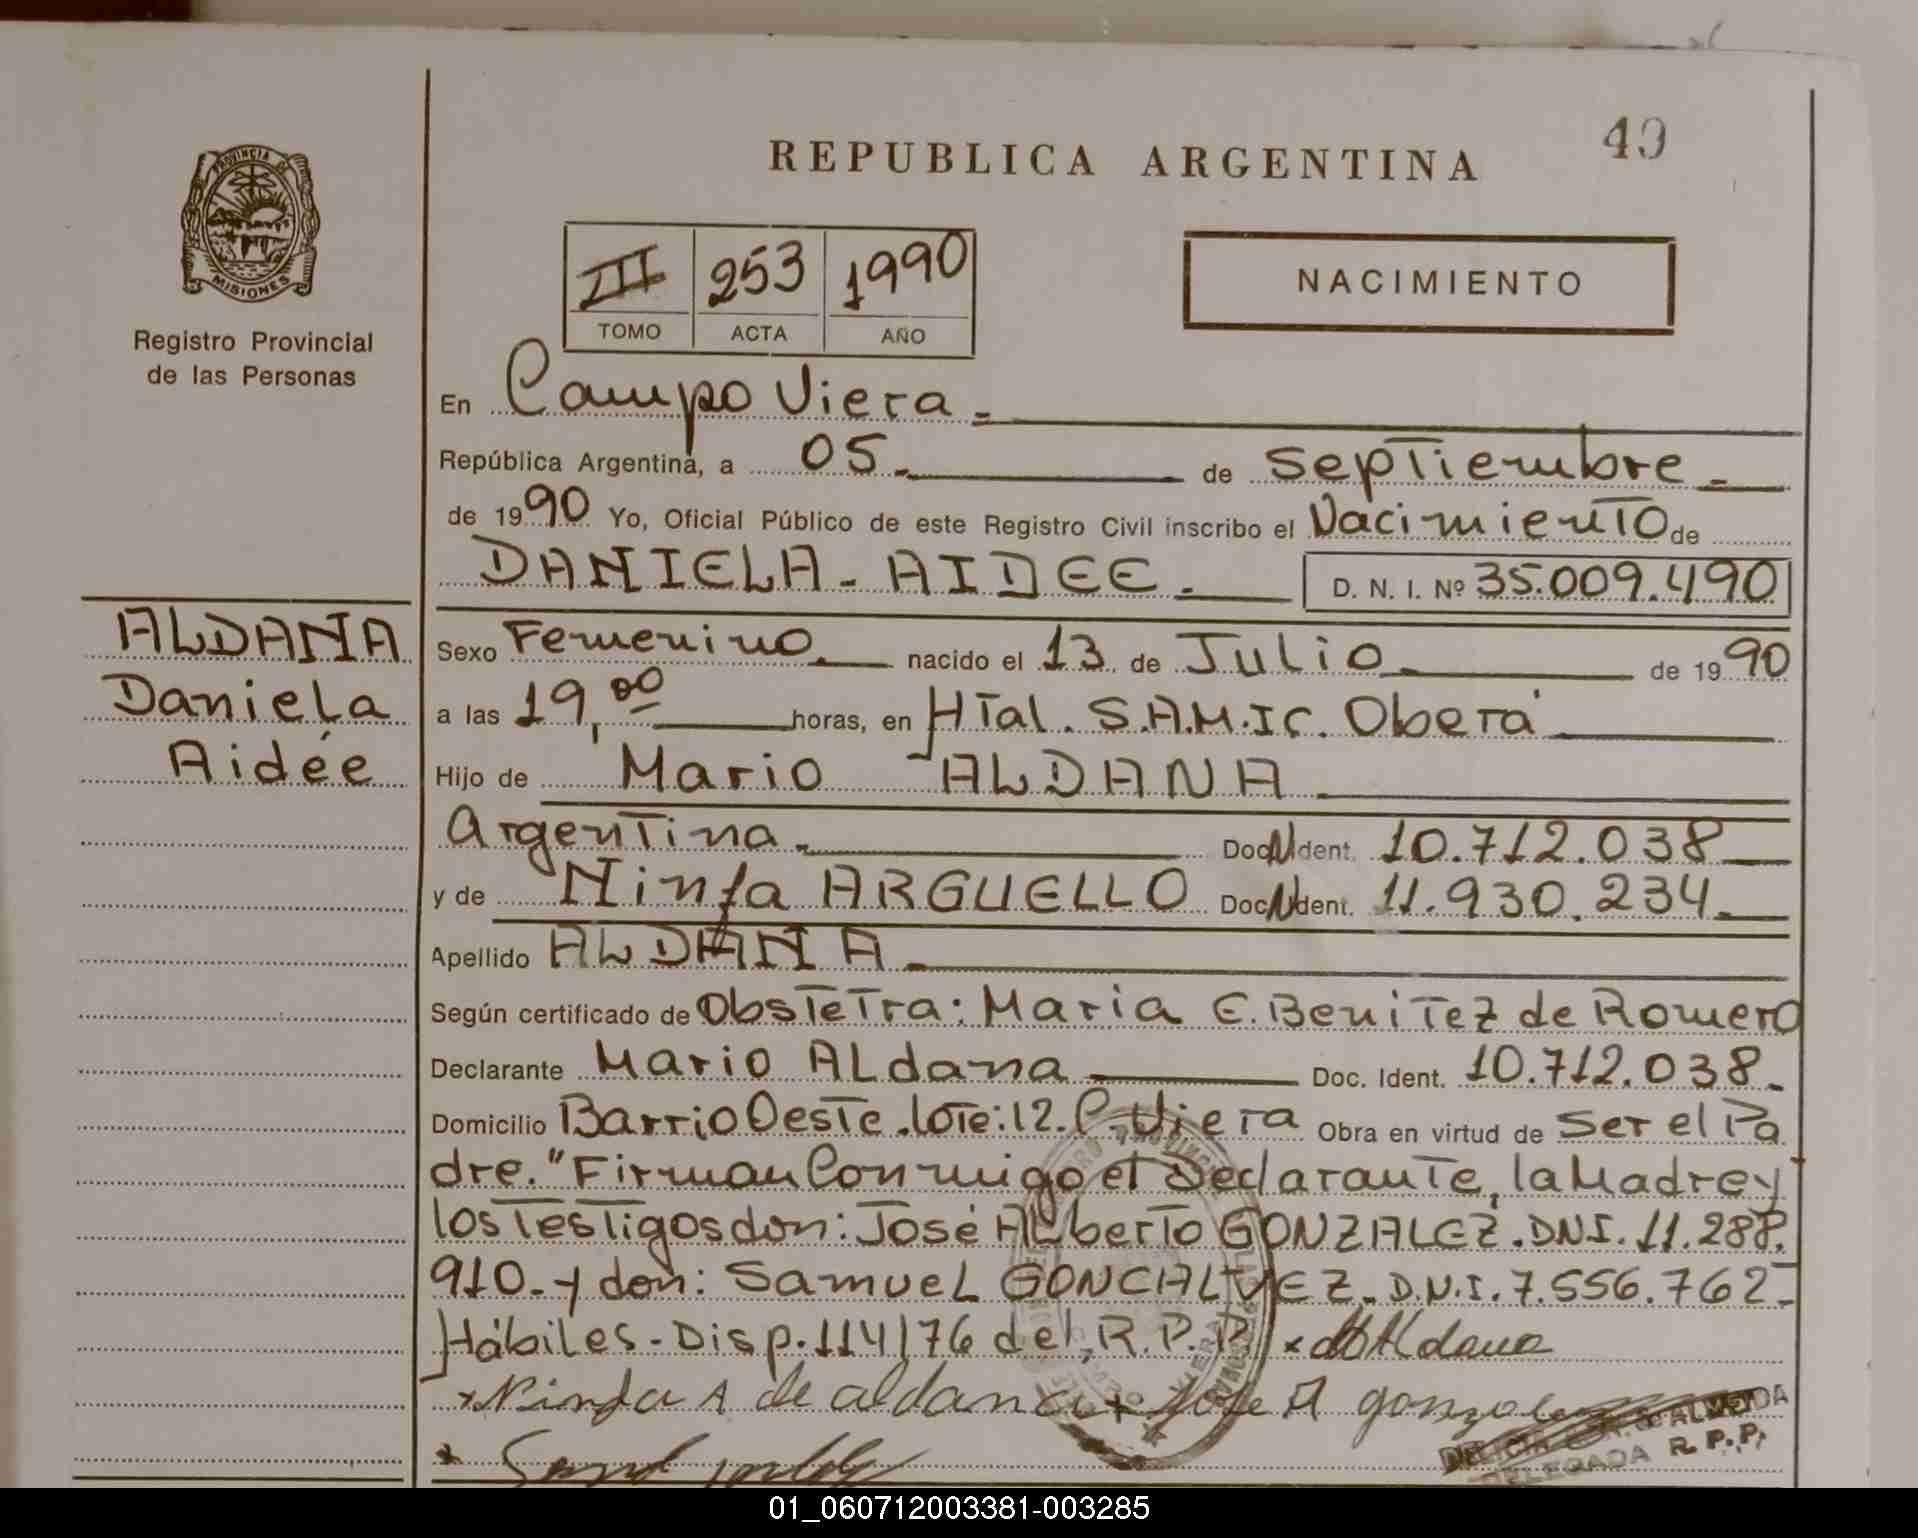 40
REPUBLICA ARGENTINA
PROVINCIA DE
MISIONES
Registro Provincial
de las Personas
III 253 1990
TOMO ACTA AÑO
NACIMIENTO
En Campo Viera.
República Argentina, a 05. de Septiembre.
de 1990 Yo, Oficial Público de este Registro Civil inscribo el Nacimiento de
DANIELA-AIDEE. D. N. I. Nº 35.009.490
ALDANA
Daniela
Aidée
Sexo Femenino. nacido el 13 de Julio. de 1990
a las 19,00 horas, en Htal. S.A.M.IC. Oberá
Hijo de Mario ALDANA.
Argentina. Doc. Ident. 10.712.038
y de Ninfa ARGUELLO Doc. Ident. 11.930.234.
Apellido ALDANA.
Según certificado de Obstetra: Maria E. Benitez de Romero
Declarante Mario ALdana Doc. Ident. 10.712.038.
Domicilio Barrio Oeste. lote: 12. C. Viera Obra en virtud de Ser el Pa
dre. "Firman Conmigo el Declarante, la Madre y
los Testigos don: José ALberto GONZALEZ. DNI. 11.288.
910. y don: SamueL GONCALVEZ. D.N.I. 7.556.762-
Hábiles-Disp. 114/76 del, R.P.P. x M Aldana
x Ninfa A de aldana x Jose A gonzalez
x
DELEGADA R. P. P.
01_060712003381-003285